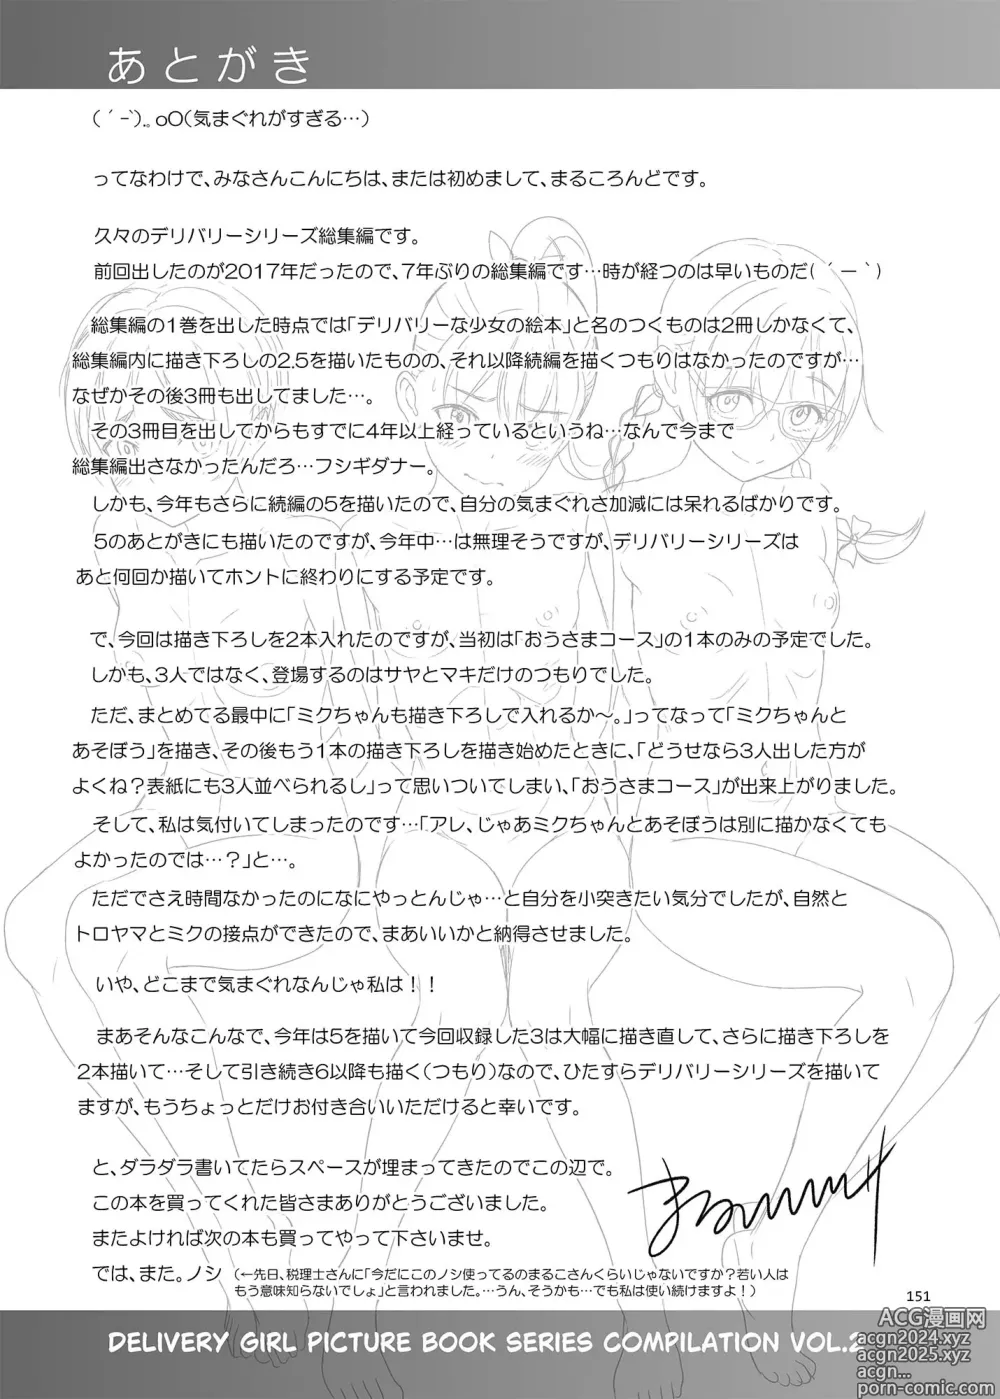 あとがき
(´-`).｡oO(気まぐれがすぎる…)
ってなわけで、みなさんこんにちは、または初めまして、まるころんどです。
久々のデリバリーシリーズ総集編です。
前回出したのが2017年だったので、7年ぶりの総集編です…時が経つのは早いものだ(´ー｀)
総集編の1巻を出した時点では「デリバリーな少女の絵本」と名のつくものは2冊しかなくて、
総集編内に描き下ろしの2.5を描いたものの、それ以降続編を描くつもりはなかったのですが…
なぜかその後3冊も出してました…。
その3冊目を出してからもすでに4年以上経っているというね…なんで今まで
総集編出さなかったんだろ…フシギダナー。
しかも、今年もさらに続編の5を描いたので、自分の気まぐれさ加減には呆れるばかりです。
5のあとがきにも描いたのですが、今年中…は無理そうですが、デリバリーシリーズは
あと何回か描いてホントに終わりにする予定です。
で、今回は描き下ろしを2本入れたのですが、当初は「おうさまコース」の1本のみの予定でした。
しかも、3人ではなく、登場するのはサヤとマキだけのつもりでした。
ただ、まとめてる最中に「ミクちゃんも描き下ろしで入れるか～。」ってなって「ミクちゃんと
あそぼう」を描き、その後もう1本の描き下ろしを描き始めたときに、「どうせなら3人出した方が
よくね？表紙にも3人並べられるし」って思いついてしまい、「おうさまコース」が出来上がりました。
そして、私は気付いてしまったのです…「アレ、じゃあミクちゃんとあそぼうは別に描かなくても
よかったのでは…？」と…。
ただでさえ時間なかったのになにやっとんじゃ…と自分を小突きたい気分でしたが、自然と
トロヤマとミクの接点ができたので、まあいいかと納得させました。
いや、どこまで気まぐれなんじゃ私は！！
まあそんなこんなで、今年は5を描いて今回収録した3は大幅に描き直して、さらに描き下ろしを
2本描いて…そして引き続き6以降も描く(つもり)なので、ひたすらデリバリーシリーズを描いて
ますが、もうちょっとだけお付き合いいただけると幸いです。
と、ダラダラ書いてたらスペースが埋まってきたのでこの辺で。
この本を買ってくれた皆さまありがとうございました。
またよければ次の本も買ってやって下さいませ。
では、また。ノシ (←先日、税理士さんに「今だにこのノシ使ってるのまるこさんくらいじゃないですか？若い人は
もう意味知らないでしょ」と言われました。…うん、そうかも…でも私は使い続けますよ！)
151
DELIVERY GIRL PICTURE BOOK SERIES COMPILATION VOL.2
ACG漫画网
acgn2024.xyz
acgn2025.xyz
acgn...
porn-comic.com